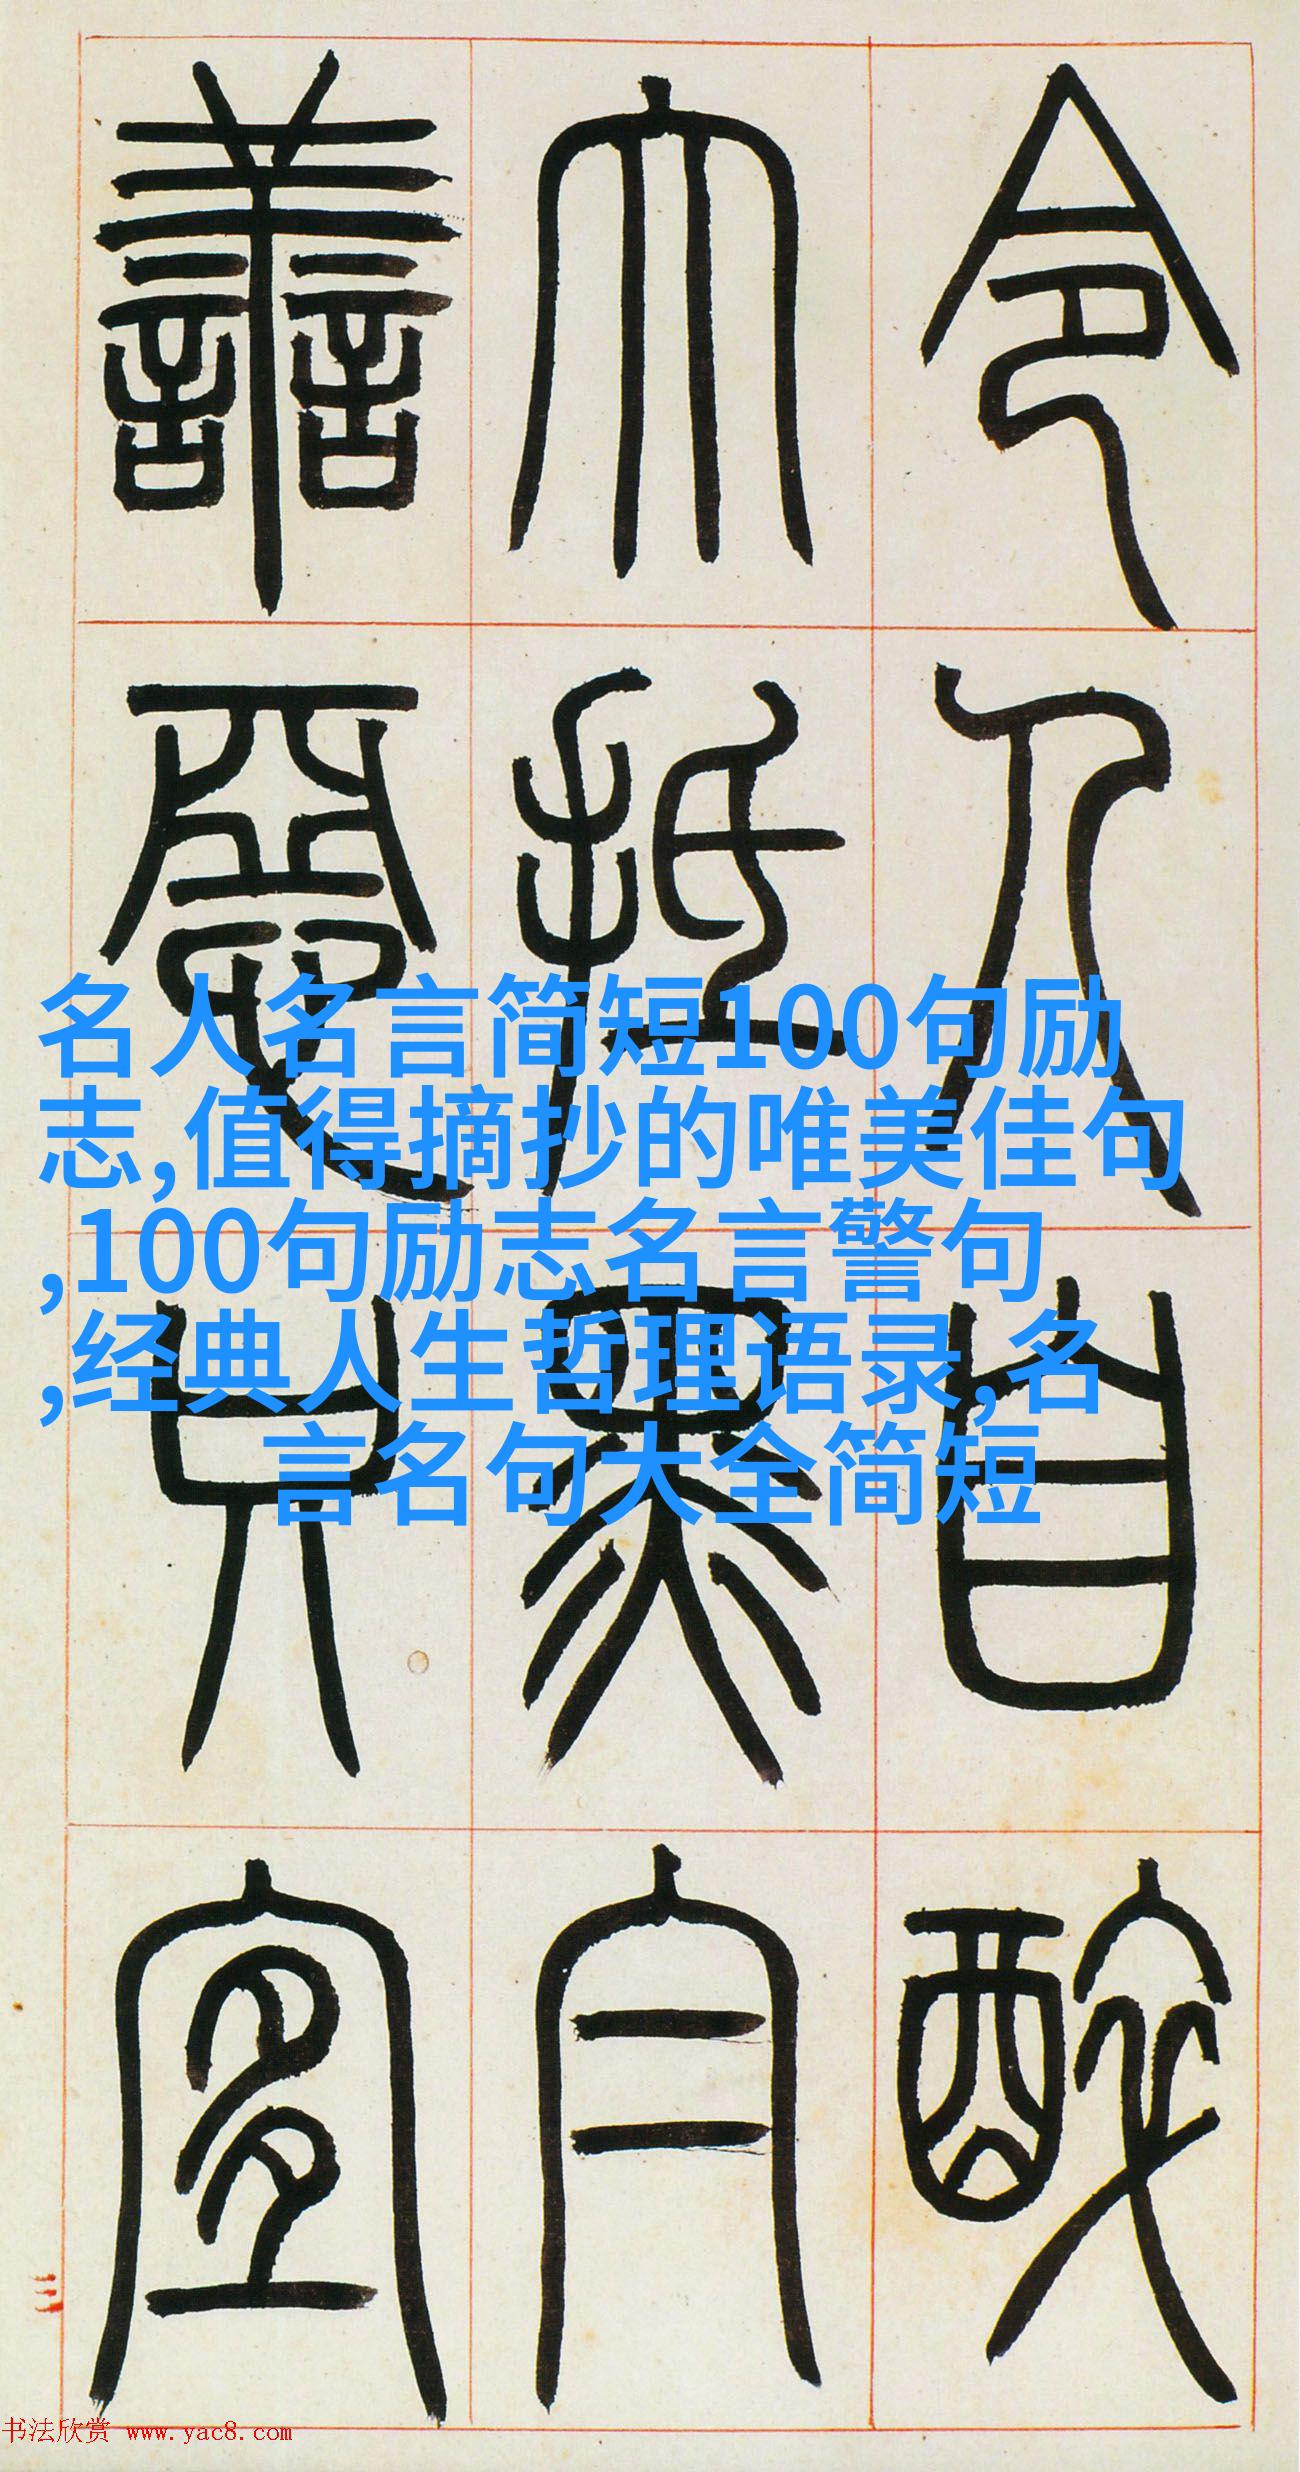 令人自醉
大抵
善宜
名人名言简短100句励
志,值得摘抄的唯美佳句
,100句励志名言警句
,经典人生哲理语录,名
言名句大全简短
三
书法欣赏 www.yac8.com